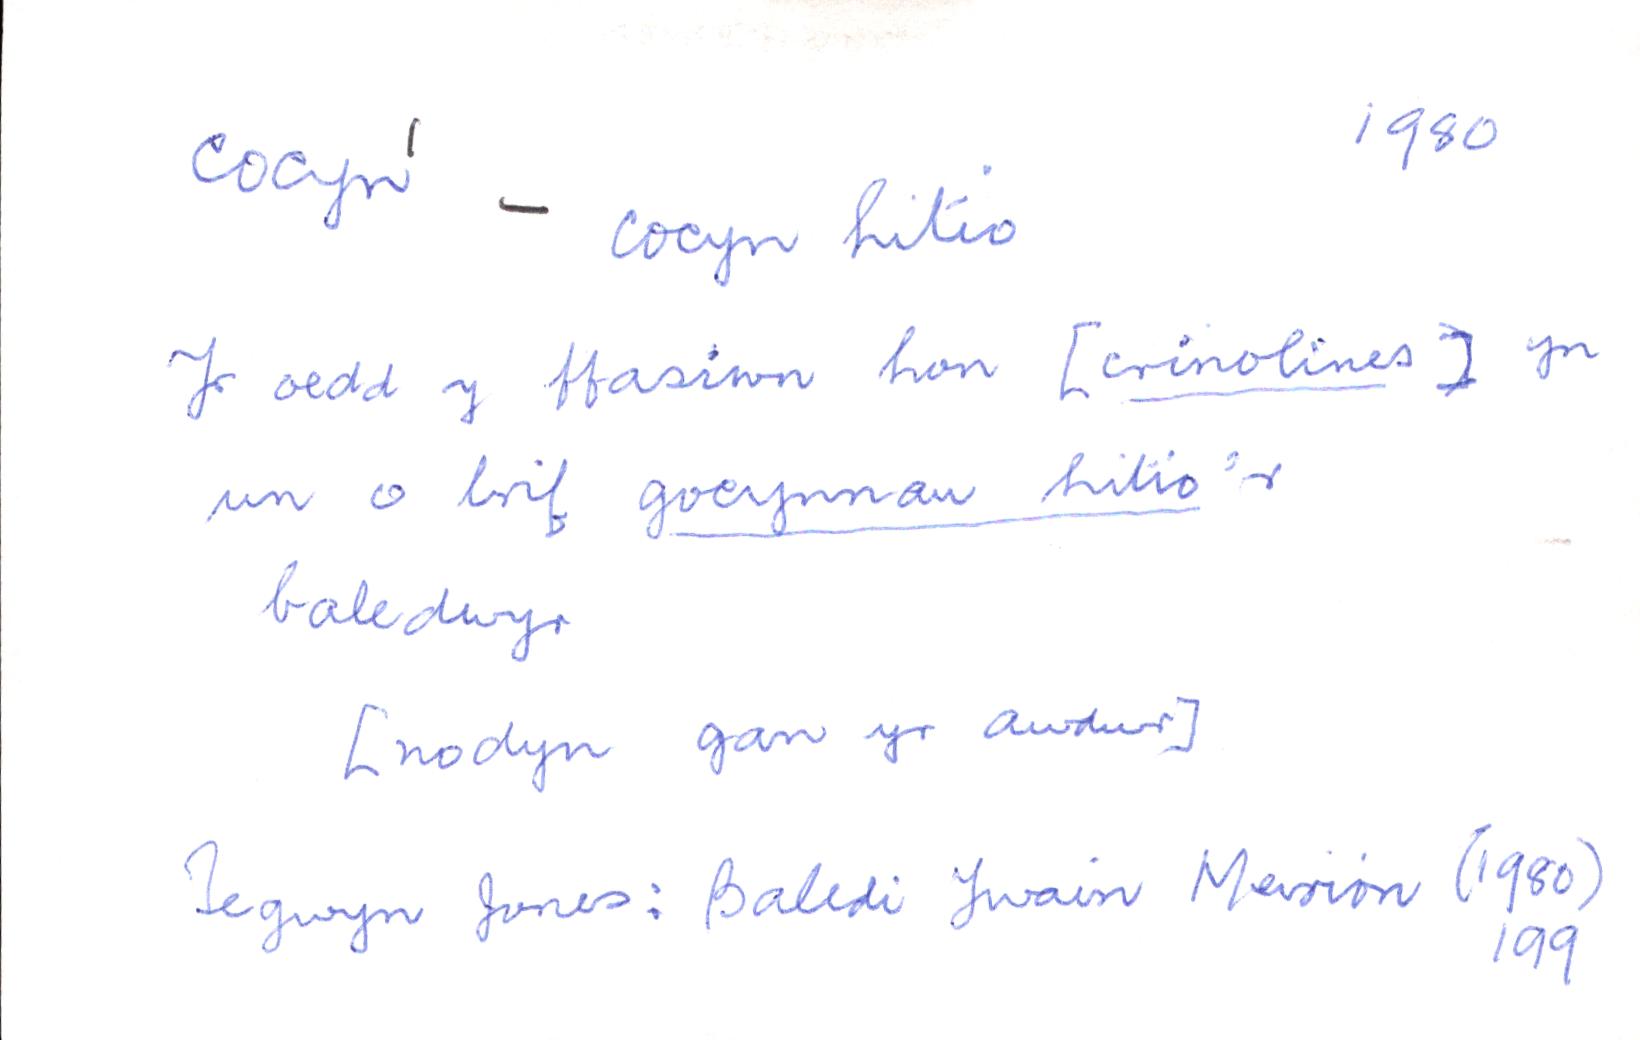 cocyn¹ – cocyn hitio 1980
Yr oedd y ffasiwn hon [crinolines] yn
un o brif gocynnau hitio'r
baledwyr
[nodyn gan yr awdur]
Tegwyn Jones: Baledi Ywain Meirion (1980)
199